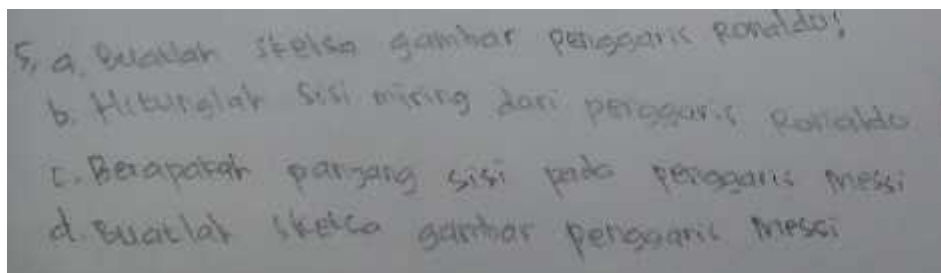 5, a. Buatlah sketsa gambar penggaris Ronaldo!
b. Hitunglah sisi miring dari penggaris Ronaldo
c. Berapakah panjang sisi pada penggaris Messi
d. Buatlah sketsa gambar penggaris Messi